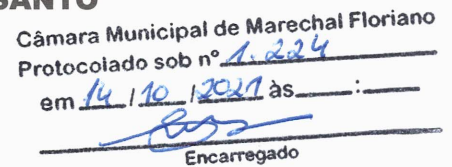 SANTO
Câmara Municipal de Marechal Floriano
Protocolado sob nº 1.224
em 14 / 10 / 2021 às ____:____
Encarregado